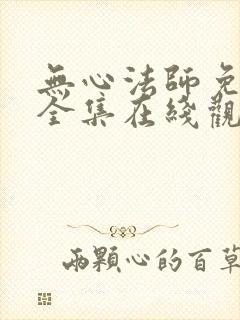 無心法師免
全集在綫觀
兩顆心的百草